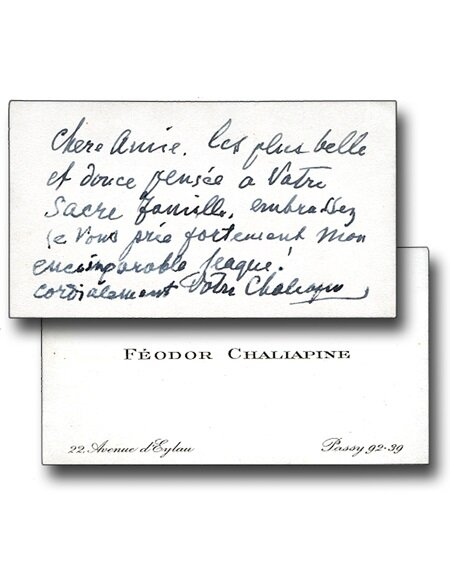 Chere Amie. les plus belle
et douce pensée a Votre
Sacre famille, embrassez
je Vous prie fortement mon
encomparable
cordialement Votre Chaliapin
FÉODOR CHALIAPINE
22. Avenue d'Eylau
Passy 92-39